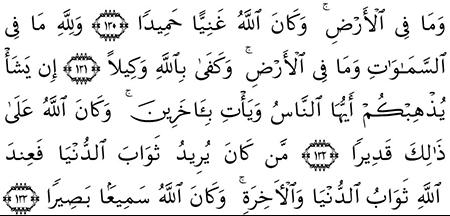 وَمَا فِى ٱلْأَرْضِ ۚ وَكَانَ ٱللَّهُ غَنِيًّا حَمِيدًا ﴿١٣٠﴾ وَلِلَّهِ مَا فِى
ٱلسَّمَـٰوَٰتِ وَمَا فِى ٱلْأَرْضِ ۚ وَكَفَىٰ بِٱللَّهِ وَكِيلًا ﴿١٣١﴾ إِن يَشَأْ
يُذْهِبْكُمْ أَيُّهَا ٱلنَّاسُ وَيَأْتِ بِـَٔاخَرِينَ ۚ وَكَانَ ٱللَّهُ عَلَىٰ
ذَٰلِكَ قَدِيرًا ﴿١٣٢﴾ مَّن كَانَ يُرِيدُ ثَوَابَ ٱلدُّنْيَا فَعِندَ
ٱللَّهِ ثَوَابُ ٱلدُّنْيَا وَٱلْأَخِرَةِ ۚ وَكَانَ ٱللَّهُ سَمِيعًۢا بَصِيرًا ﴿١٣٣﴾